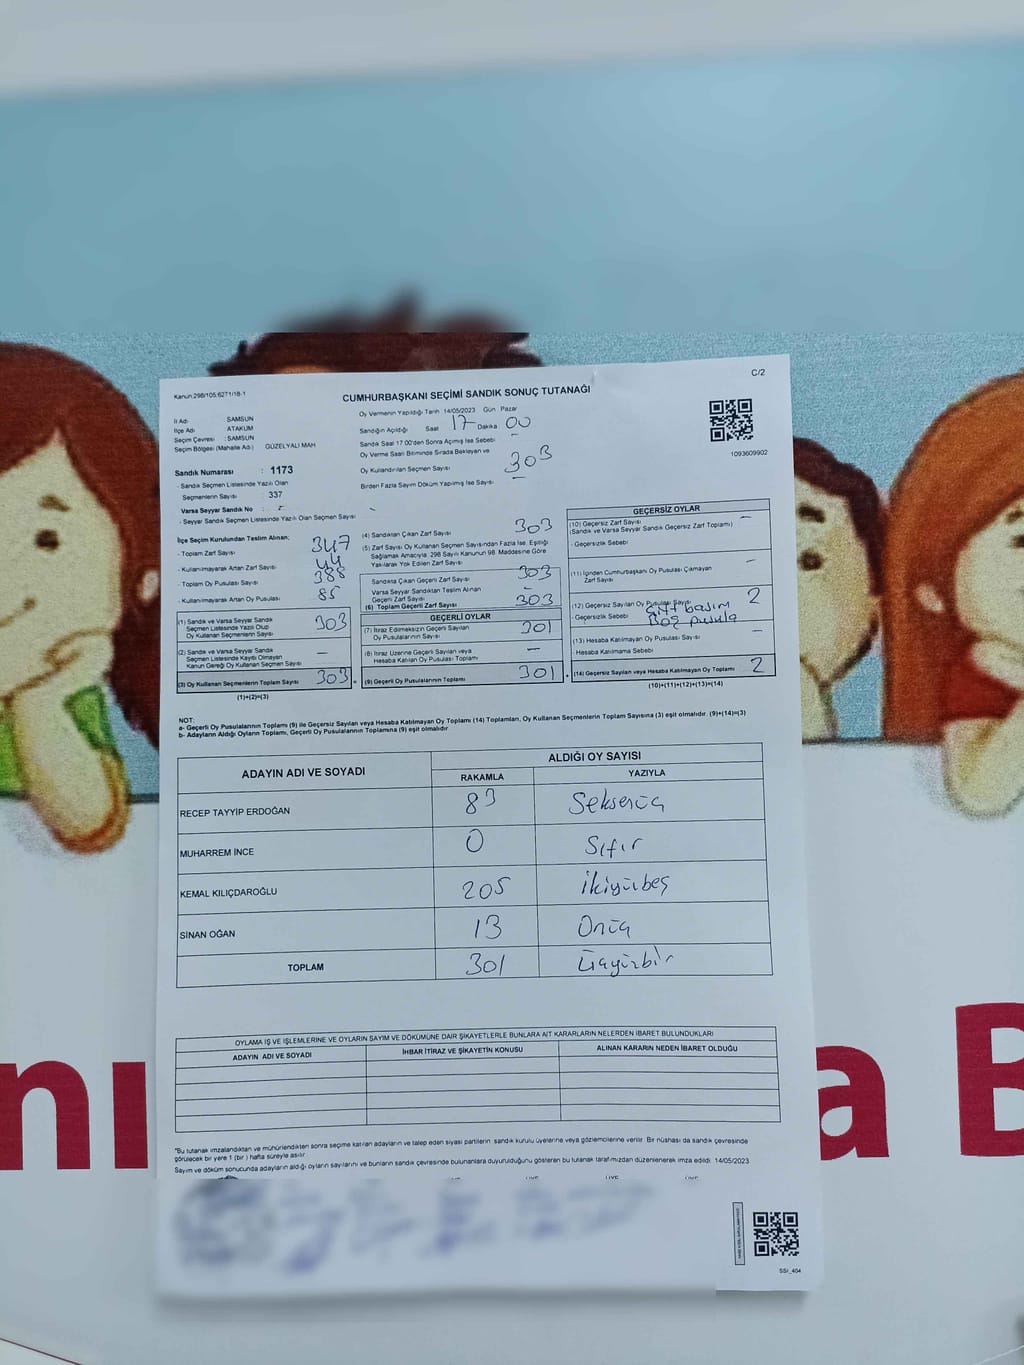 C/2
Kanun:298/105.6271/18-1
CUMHURBAŞKANI SEÇİMİ SANDIK SONUÇ TUTANAĞI
İl Adı SAMSUN
İlçe Adı ATAKUM
Seçim Çevresi : SAMSUN
Seçim Bölgesi (Mahalle Adı) GÜZELYALI MAH
Sandık Numarası : 1173
- Sandık Seçmen Listesinde Yazılı Olan
Seçmenlerin Sayısı : 337
Varsa Seyyar Sandık No :
- Seyyar Sandık Seçmen Listesinde Yazılı Olan Seçmen Sayısı
Oy Vermenin Yapıldığı Tarih 14/05/2023 Gün Pazar
Sandığın Açıldığı Saat 17 Dakika 00
Sandık Saat 17:00'den Sonra Açılmış İse Sebebi -
Oy Verme Saati Bitiminde Sırada Bekleyen ve
Oy Kullandırılan Seçmen Sayısı 303
Birden Fazla Sayım Döküm Yapılmış İse Sayısı -
1093609902
İlçe Seçim Kurulundan Teslim Alınan;
- Toplam Zarf Sayısı 347
- Kullanılmayarak Artan Zarf Sayısı 44
- Toplam Oy Pusulası Sayısı 388
- Kullanılmayarak Artan Oy Pusulası 85
(1) Sandık ve Varsa Seyyar Sandık
Seçmen Listesinde Yazılı Olup
Oy Kullanan Seçmenlerin Sayısı 303
(2) Sandık ve Varsa Seyyar Sandık
Seçmen Listesinde Kayıtlı Olmayan
Kanun Gereği Oy Kullanan Seçmen Sayısı -
(3) Oy Kullanan Seçmenlerin Toplam Sayısı 303
(1)+(2)=(3)
(4) Sandıktan Çıkan Zarf Sayısı 303
(5) Zarf Sayısı Oy Kullanan Seçmen Sayısından Fazla İse, Eşitliği
Sağlamak Amacıyla, 298 Sayılı Kanunun 98. Maddesine Göre
Yakılarak Yok Edilen Zarf Sayısı -
Sandıkta Çıkan Geçerli Zarf Sayısı 303
Varsa Seyyar Sandıktan Teslim Alınan
Geçerli Zarf Sayısı -
(6) Toplam Geçerli Zarf Sayısı 303
GEÇERLİ OYLAR
(7) İtiraz Edilmeksizin Geçerli Sayılan
Oy Pusulalarının Sayısı 301
(8) İtiraz Üzerine Geçerli Sayılan veya
Hesaba Katılan Oy Pusulası Toplamı -
(9) Geçerli Oy Pusulalarının Toplamı 301
GEÇERSİZ OYLAR
(10) Geçersiz Zarf Sayısı -
(Sandık ve Varsa Seyyar Sandık Geçersiz Zarf Toplamı)
- Geçersizlik Sebebi
(11) İçinden Cumhurbaşkanı Oy Pusulası Çıkmayan
Zarf Sayısı -
(12) Geçersiz Sayılan Oy Pusulası Sayısı 2
- Geçersizlik Sebebi Çift basım
Boş pusula
(13) Hesaba Katılmayan Oy Pusulası Sayısı -
- Hesaba Katılmama Sebebi
(14) Geçersiz Sayılan veya Hesaba Katılmayan Oy Toplamı 2
(10)+(11)+(12)+(13)=(14)
NOT:
a- Geçerli Oy Pusulalarının Toplamı (9) ile Geçersiz Sayılan veya Hesaba Katılmayan Oy Toplamı (14) Toplamları, Oy Kullanan Seçmenlerin Toplam Sayısına (3) eşit olmalıdır. (9)+(14)=(3)
b- Adayların Aldığı Oyların Toplamı, Geçerli Oy Pusulalarının Toplamına (9) eşit olmalıdır
ADAYIN ADI VE SOYADI ALDIĞI OY SAYISI
RAKAMLA YAZIYLA
RECEP TAYYİP ERDOĞAN 83 Seksenüç
MUHARREM İNCE 0 Sıfır
KEMAL KILIÇDAROĞLU 205 İkiyüzbeş
SİNAN OĞAN 13 Onüç
TOPLAM 301 Üçyüzbir
OYLAMA İŞ VE İŞLEMLERİNE VE OYLARIN SAYIM VE DÖKÜMÜNE DAİR ŞİKAYETLERLE BUNLARA AİT KARARLARIN NELERDEN İBARET BULUNDUKLARI
ADAYIN ADI VE SOYADI İHBAR İTİRAZ VE ŞİKAYETİN KONUSU ALINAN KARARIN NEDEN İBARET OLDUĞU
"Bu tutanak imzalandıktan ve mühürlendikten sonra seçime katılan adayların ve talep eden siyasi partilerin sandık kurulu üyelerine veya gözlemcilerine verilir. Bir nüshası da sandık çevresinde
görülecek bir yere 1 (bir) hafta süreyle asılır.
Sayım ve döküm sonucunda adayların aldığı oyların sayılarını ve bunların sandık çevresinde bulunanlara duyurulduğunu gösteren bu tutanak tarafımızdan düzenlenerek imza edildi. 14/05/2023
SSI_404
nı a B